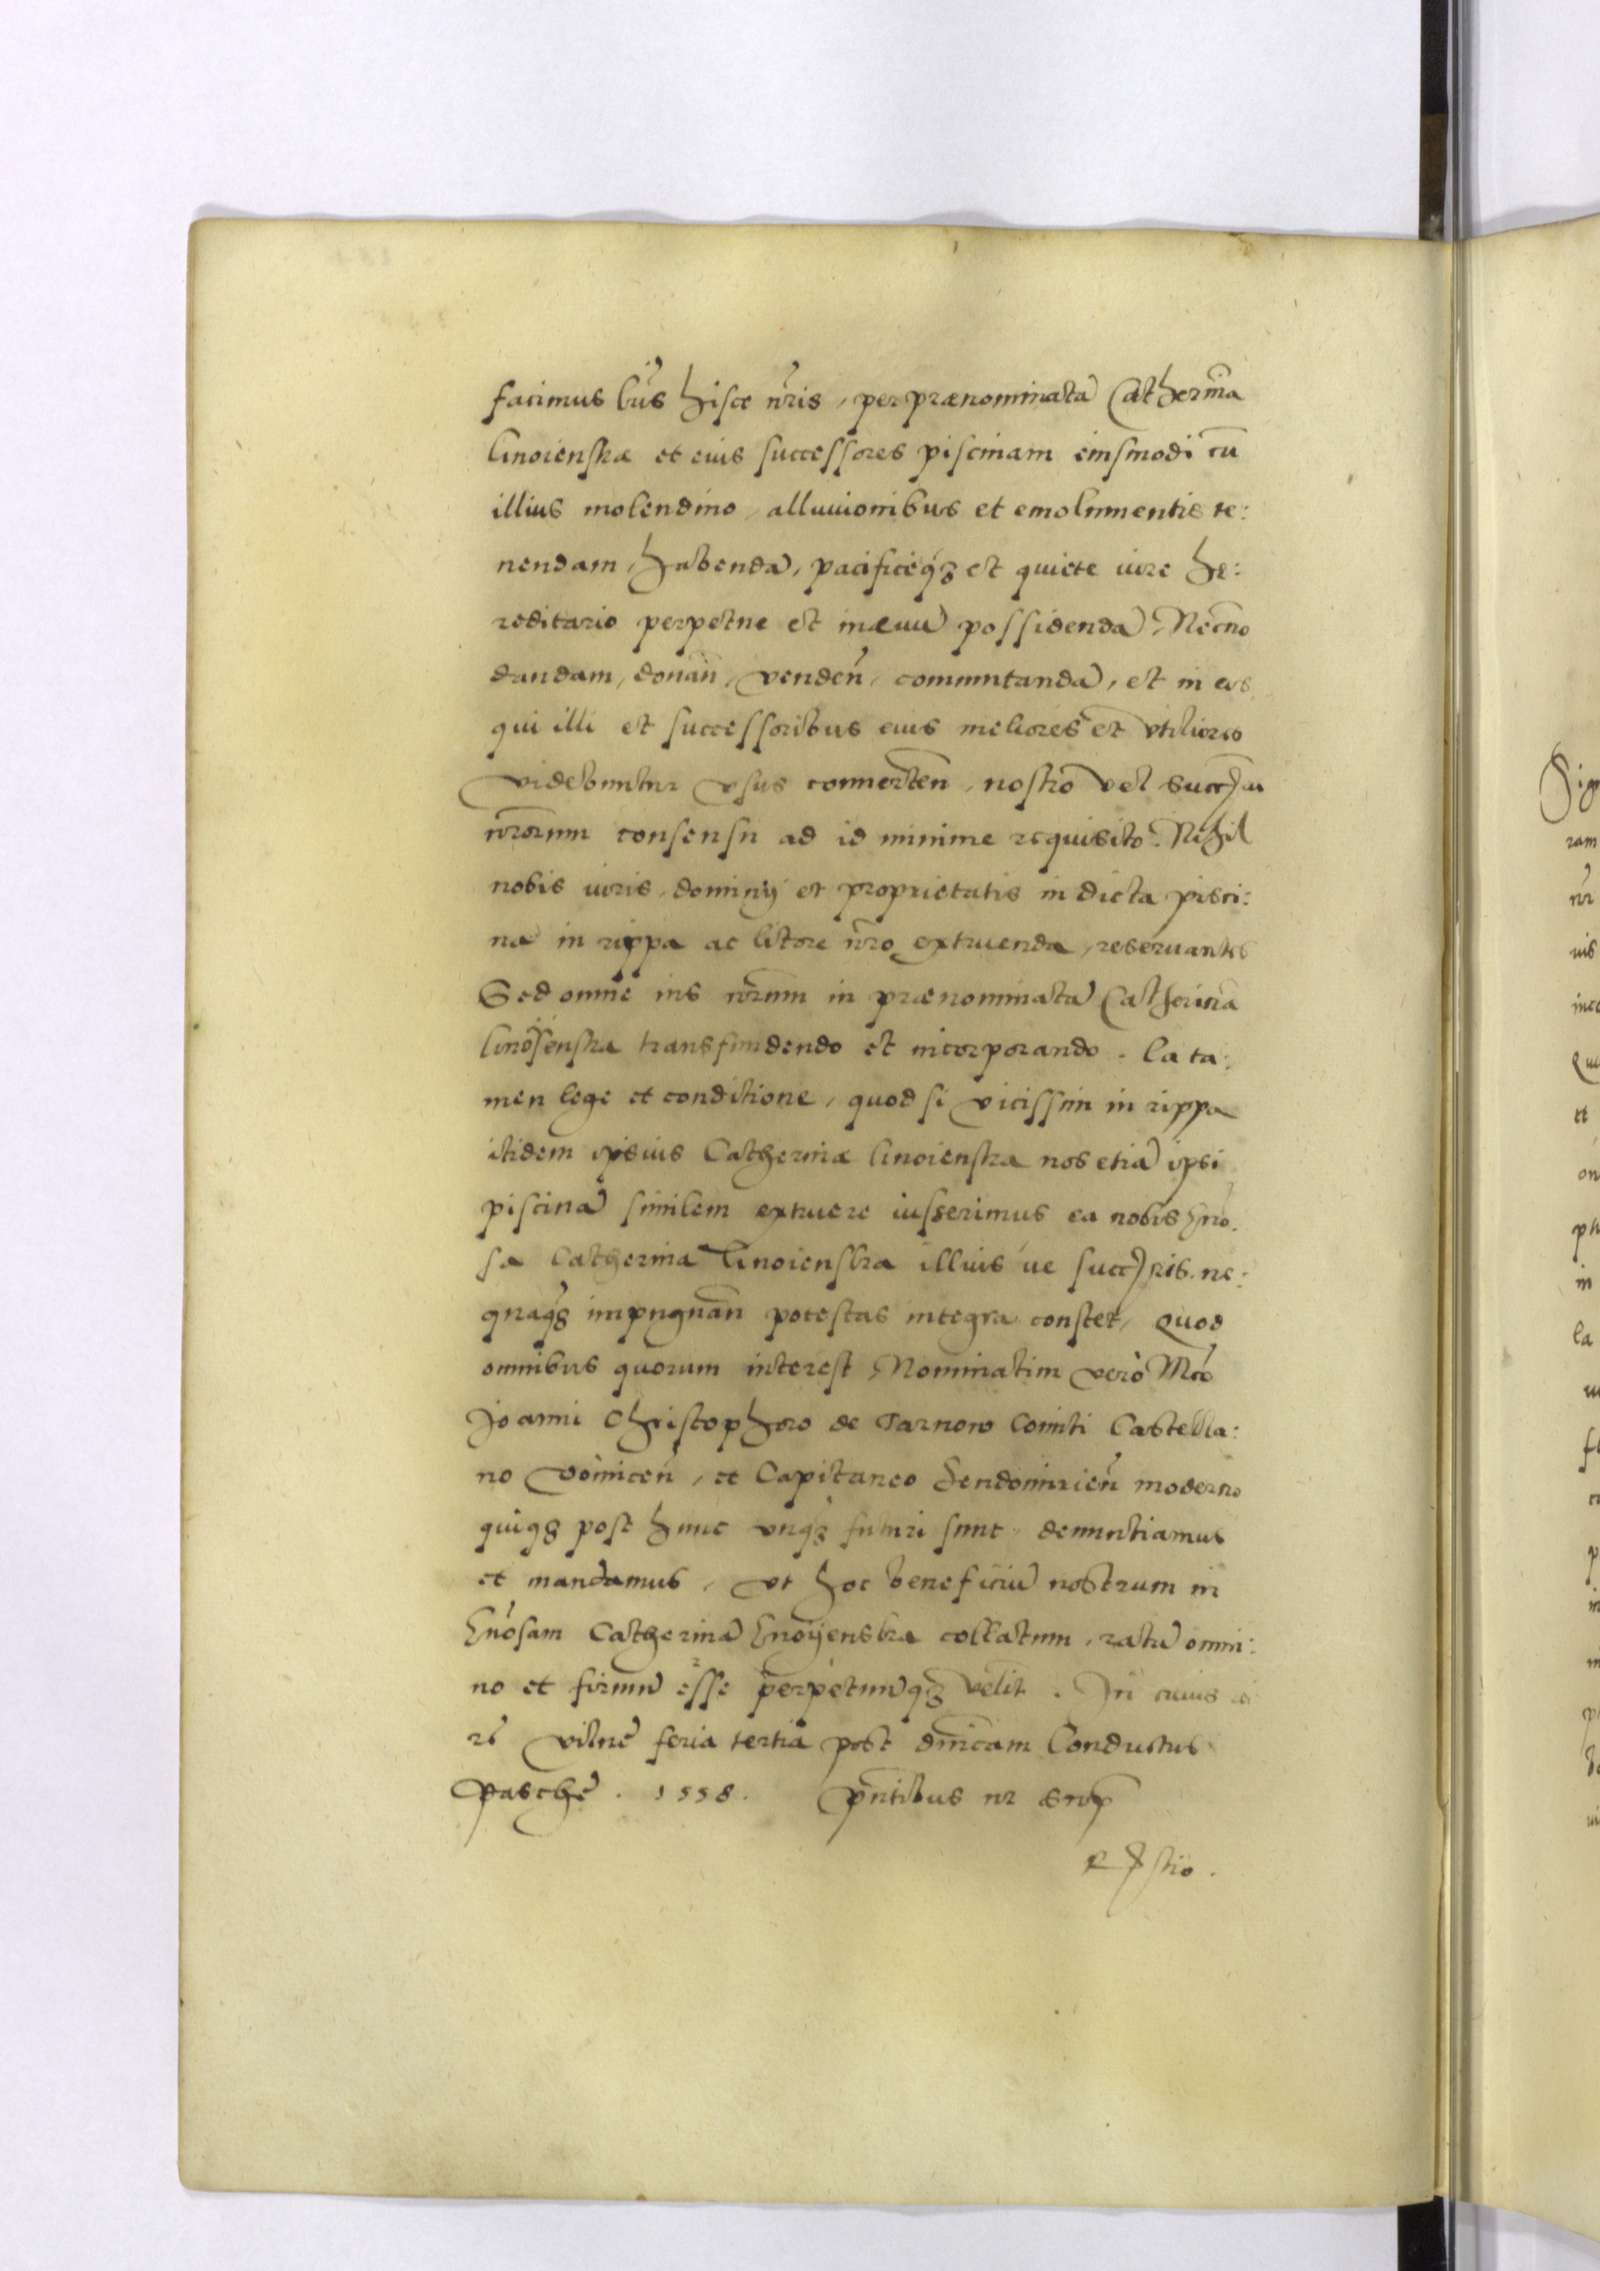 facimus lr̃is hisce nr̃is, per prænominatã Catherinã
Gnoienska et eius successores piscinam eiusmodi cũ
illius molendino, alluvionibus et emolumentis te:
nendam, habendã, pacificeq3 et quiete iure he:
reditario perpetue et in ævũ possidendã, Necnõ
dandam, donañ, vendeñ, commutandã, et in eos
qui illi et successoribus eius meliores et vtiliores
videbuntur vsus conuerteñ, nostro vel succ̃
nr̃orum consensu ad id minime requisito. Nihil
nobis iuris, dominij et proprietatis in dicta pisci:
na in rippa ac litore nr̃o extruenda, reservantes
Sed omne ius nr̃um in prænominatã Catherinã
Gnoiienska transfundendo et incorporando. Ea ta:
men lege et conditione, quod si vicissim in rippa
itidem ipsius Catherinæ Gnoienska nos etiã ipsi
piscinã similem extruere iusserimus ea nobis gño.
sa Catherina Gnoienska illius ue succ̃ribs. ne:
quaq3 impugnañ potestas integra constet, Quod
omnibus quorum interest, Nominatim vero Mco
Joanni Christophoro de Tarnow Comiti Castella:
no Voiniceñ, et Capitaneo Sendomirieñ moderno
quiq3 post hunc vnq3 futuri sunt denuntiamus
et mandamus, vt hoc beneficiũ nostrum in
gñosam Catherinã Gnoyenska collatum, ratũ omni:
no et firmũ esse perpetuumq3 velit. In cuius rei
rẽ Vilnẽ feria tertia post dñicam Conductus
Paschẽ. 1558. pñtibus